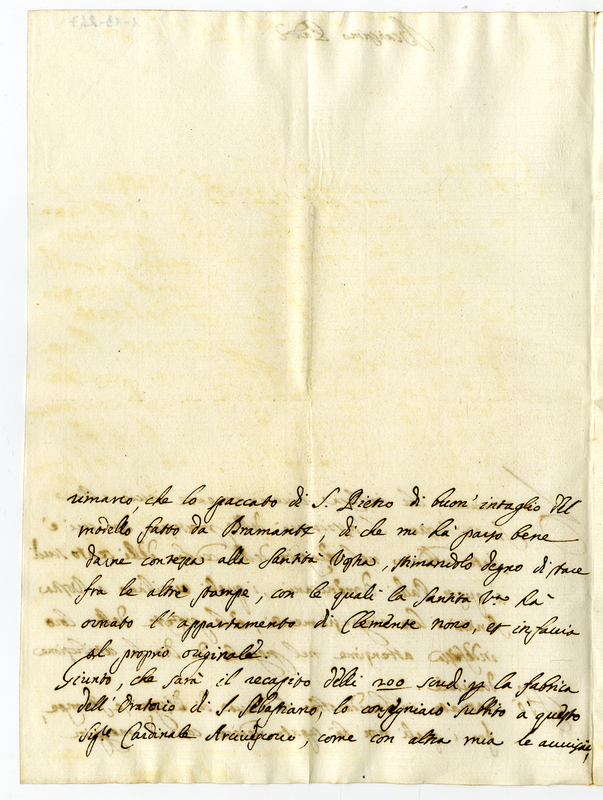 rimarco, che lo spaccato di S. Pietro di buon' intaglio del
modello fatto da Bramante, di che mi hà parso bene
darne contezza alla Santità Vostra, stimandolo degno di stare
fra le altre stampe, con le quali la Santità V.ra hà
ornato l'appartamento di Clemente nono, et in faccia
al proprio originale.
Giunto, che sarà il recapito delli 200 scudi per la fabrica
dell'Oratorio di S. Sebastiano, lo consegniarò subito à questo
Sig.re Cardinale Arcivescovo, come con altra mia le avvisai,